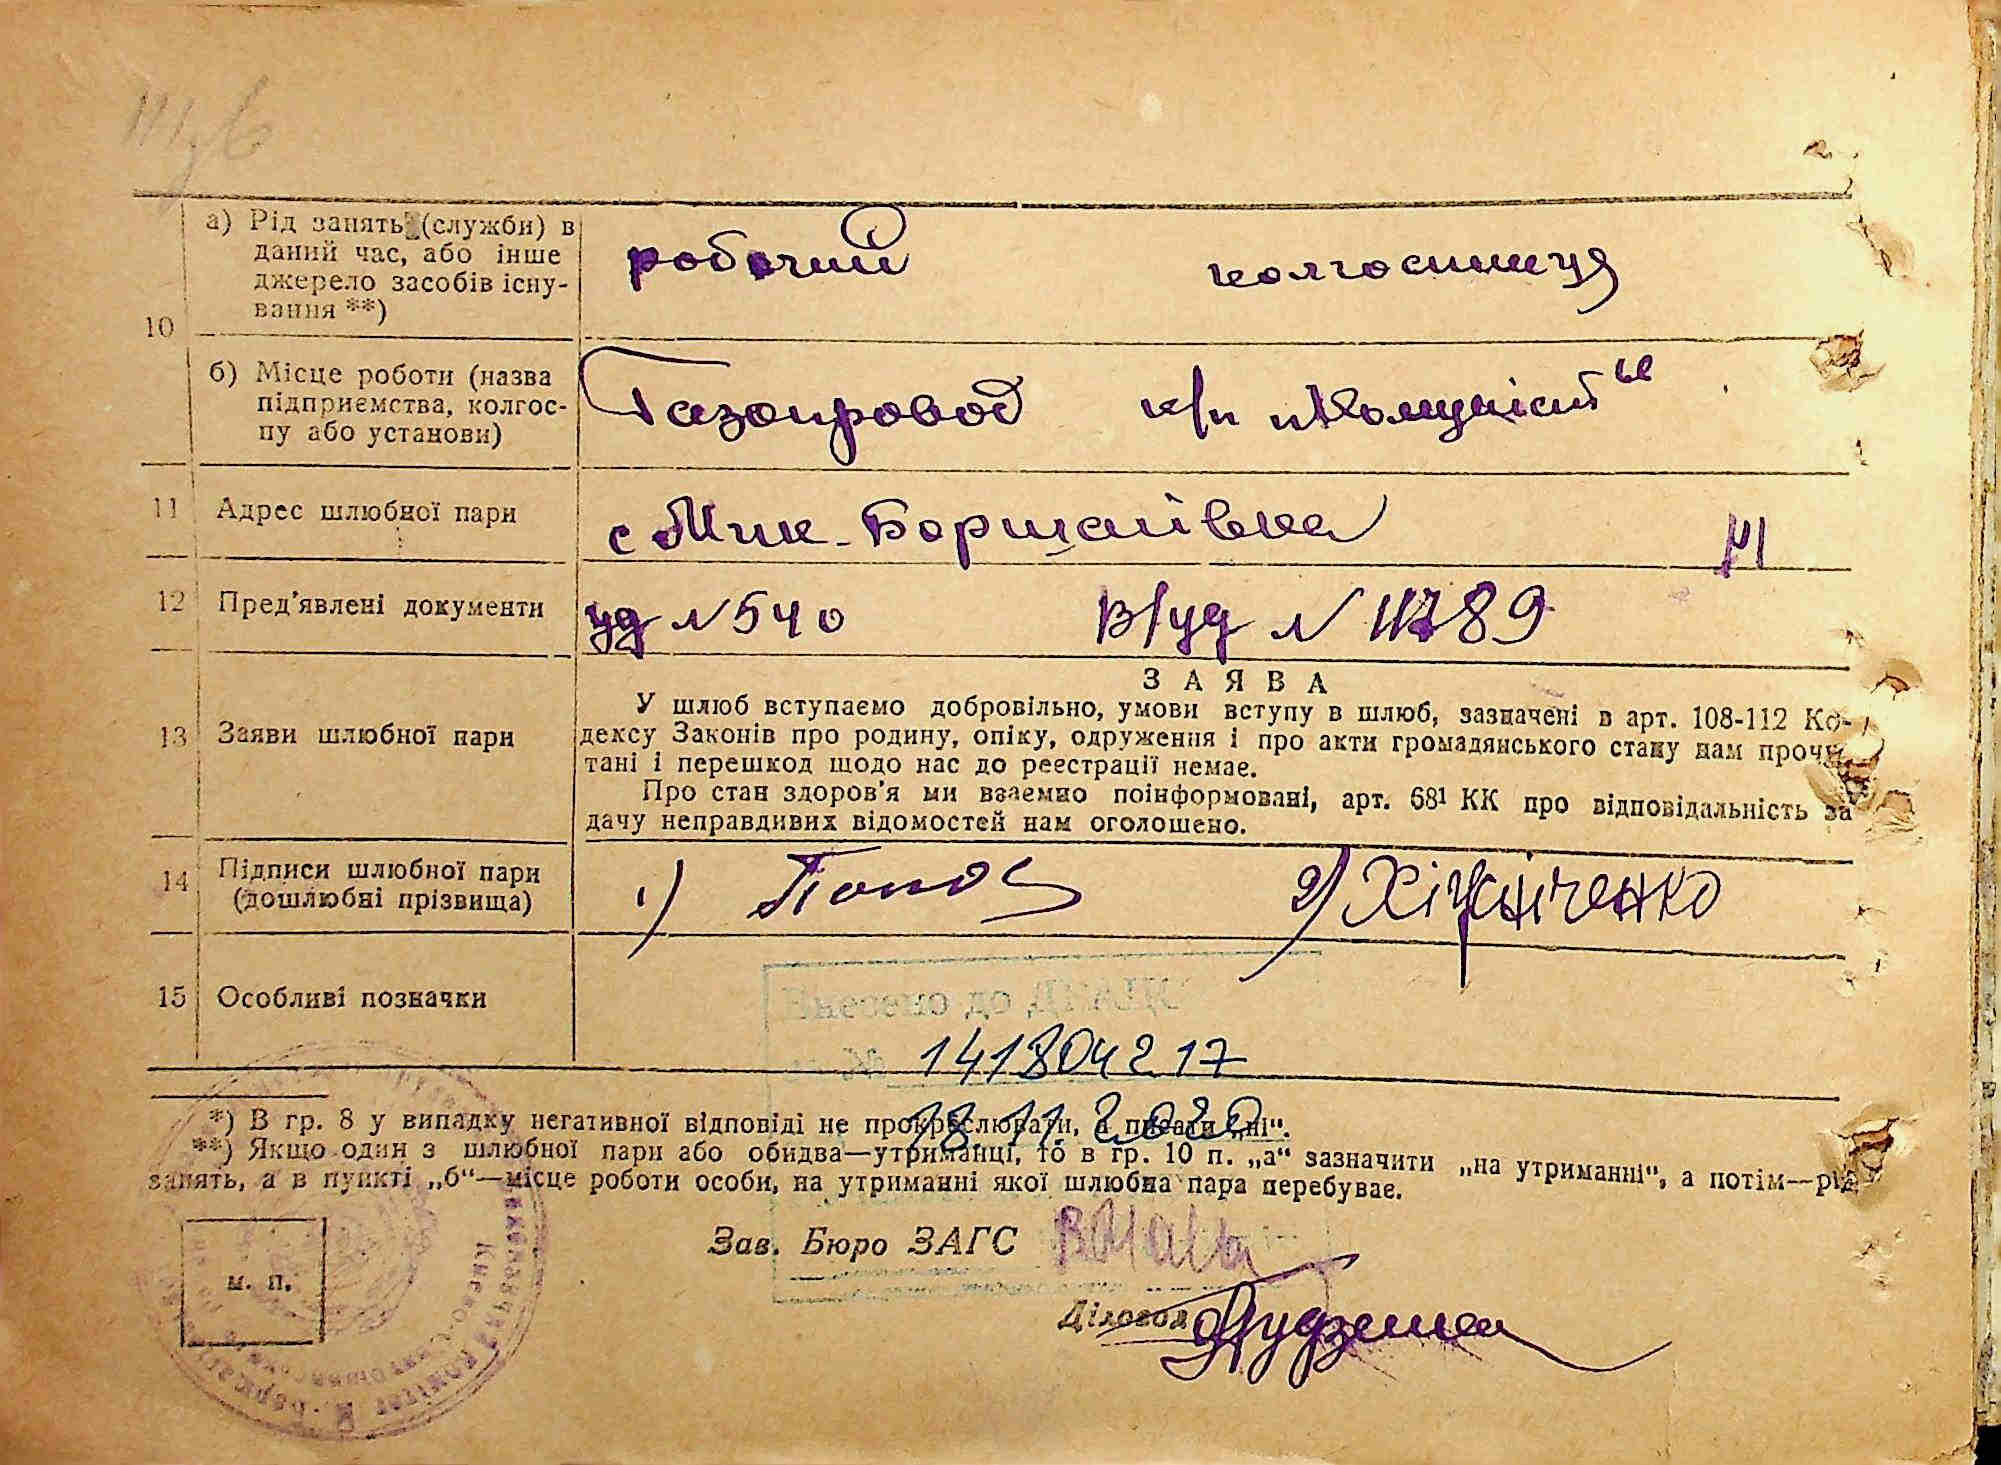 10 а) Рід занять (служби) в
даний час, або інше
джерело засобів існу-
вання **)
робочий колгоспниця
б) Місце роботи (назва
підприємства, колгос-
пу або установи)
Газопровод к/п „Комуніст“
11 Адрес шлюбної пари
с Мик-Борщаівка
12 Пред'явлені документи
уд N 540 в/уд N
13 Заяви шлюбної пари
ЗАЯВА
У шлюб вступаємо добровільно, умови вступу в шлюб, зазначені в арт. 108-112 Ко-
дексу Законів про родину, опіку, одруження і про акти громадянського стану нам прочи
тані і перешкод щодо нас до реєстрації немає.
Про стан здоров'я ми взаємно поінформовані, арт. 68¹ КК про відповідальність за
дачу неправдивих відомостей нам оголошено.
14 Підписи шлюбної пари
(дошлюбні прізвища)
1) Попов 2) Хіжніченко
15 Особливі позначки
Внесено до ДРАЦС
за № 141804217
18.11.2020
*) В гр. 8 у випадку негативної відповіді не прокреслювати, а писати „ні“.
**) Якщо один з шлюбної пари або обидва—утриманці, то в гр. 10 п. „а“ зазначити „на утриманні“, а потім—рід
занять, а в пункті „б“—місце роботи особи, на утриманні якої шлюбна пара перебуває.
Зав. Бюро ЗАГС
м. п.
Діловод